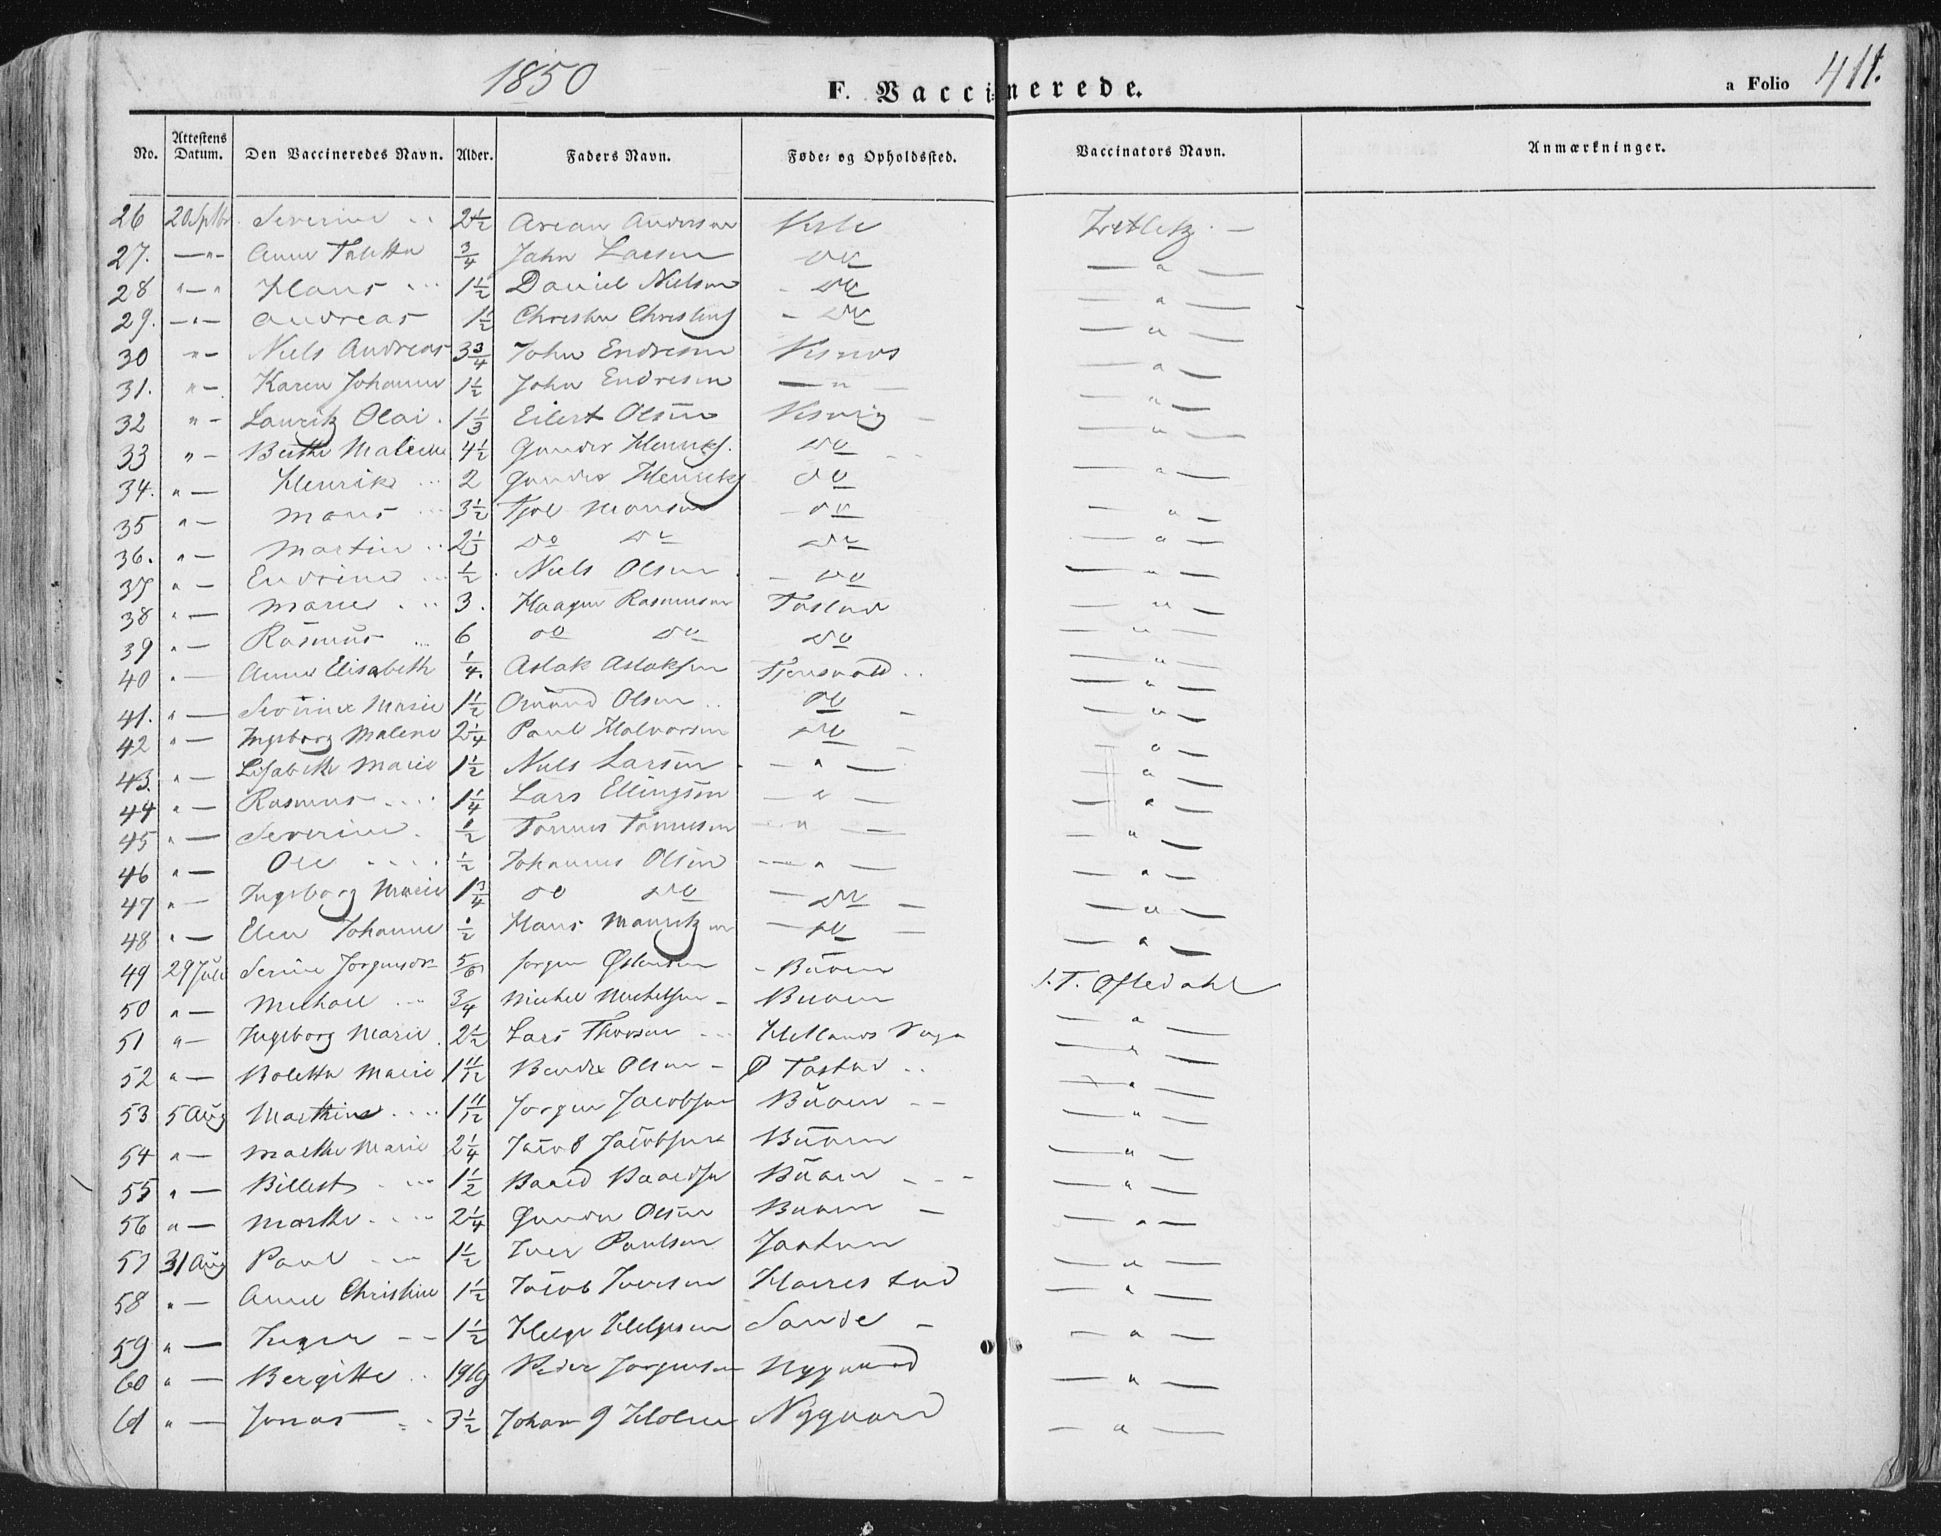 1850 F. Vaccinerede. a Folio 411.
No. Attestens Datum. Den Vaccineredes Navn. Alder. Faders Navn. Føde- og Opholdssted. Vaccinators Navn. Anmærkninger.
26 20 Sptbr. Severine 2 1/2 Anderson Zetlitz
27. — " - Anne Taletta 3/4 John Larsen do — " —
28 " — " Hans 1 1/2 Daniel Nielsen - do — " —
29. — " — Andreas 1 1/2 Christen - do — " —
30 " - Niels Andreas 3 3/4 John Endresen — " —
31. " - Karen Johanne 1 1/2 John Endresen — " — — " —
32 " - Lauritz Olai 1 1/3 Eilert Olsen — " —
33 " - Berthe Malene 4 1/2 Gunder Henriks. do — " —
34. " — Henrik 2 Gunder Henriks do — " —
35 " — Mons 3 1/2 Monsen - do — " —
36. " — Martin 2 1/3 do do do — " —
37 " — Endrine 1/2 Niels Olsen - do — " —
38 " — Marie 3. Haagen Rasmusen Tastad — " —
39 " — Rasmus 6 do do do — " —
40 " — Anne Elisabeth 1/4. Aslak Aslaksen Tjensvold — " —
41. " — Marie 1 1/2 Olsen do — " —
42 " — Ingeborg Malene 2 1/4 Paul Halvorsen do — " —
43. " — Lisabeth Marie 1 1/2 Niels Larsen — " — — " —
44 " — Rasmus 1 1/4 Lars Ellingsen — " — — " —
45 " — Severine 1/2 Tønnes Tønnesen — " — — " —
46 " — Ole 1/2 Johannes Olsen — " — — " —
47 " — Ingeborg Marie 1 3/4 do do — do — — " —
48 " — Elen Johanne 1/2 Hans Mauritzen — do — — " —
49 29 Juli Serine Jørgensdr 5/6 Jørgen Østensen - Buøen S. T. Oftedahl
50 " — Michael 3/4 Michel Michelsen Buøen — " —
51 " — Ingeborg Marie 2 1/2 Lars Thorsen Hetlands Sogn — " —
52 " — Bolette Marie 1 11/12 Bendix Olsen Ø Tastad — " —
53 5 Aug Marthine 1 11/12 Jørgen Jacobsen Buøen — " —
54 " — Marthe Marie 2 1/4 Jacob Jacobsen Buøen — " —
55 " — 1 1/2 Baard Baardsen Buøen — " —
56 " — Marthe 2 1/4 Gunder Olsen Buøen — " —
57 31 Aug Paul 1 1/2 Iver Paulsen Jaatun — " —
58 " — Anne Christine 1 1/2 Jacob Iversen Harrestad — " —
59 " — Inger 1 1/2 Helge Helgesen Sande — " —
60 " — Bergitte Peder Jørgensen Nygaard — " —
61 " — Jonas 3 1/2 Johan G Holm Nygaard — " —